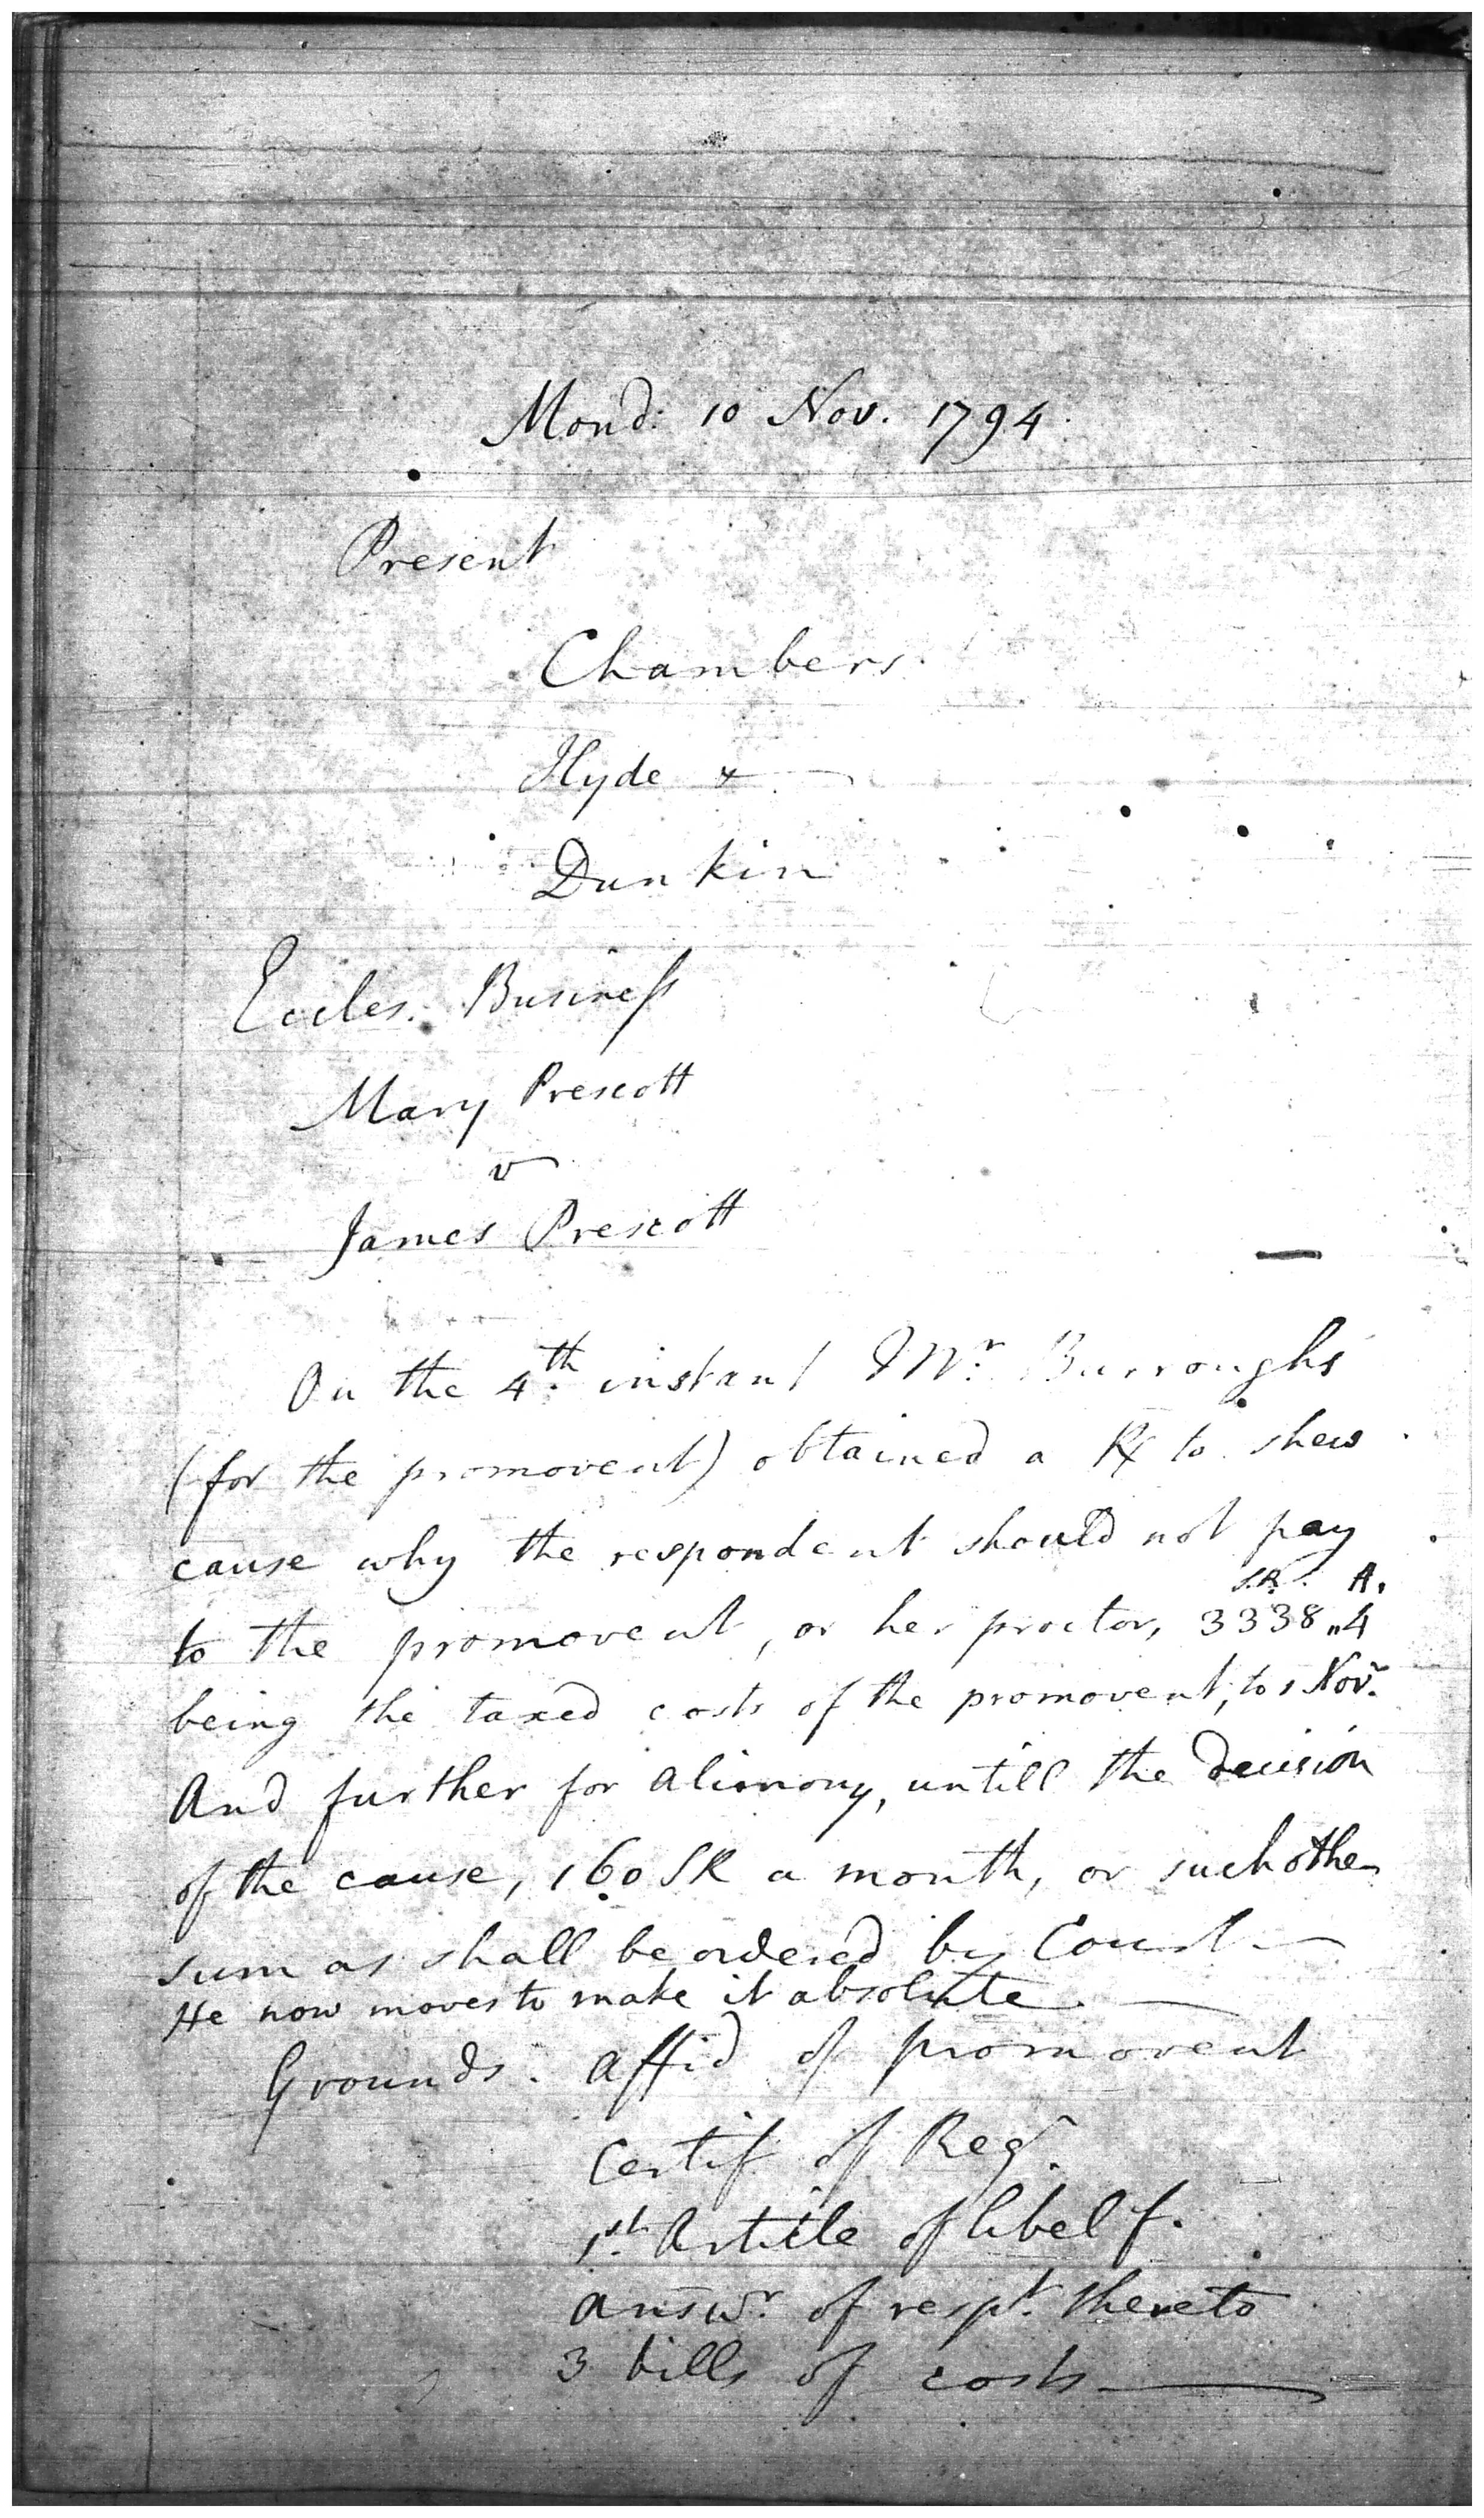 Mond: 10 Nov. 1794.
Present
Chambers
Hyde &
Dunkin
Eccles. Business
Mary Prescott
v
James Prescott
On the 4th. instant Mr. Burroughs
(for the promovent) obtained a R to shew
cause why the respondent should not pay
S.R. A.
to the promovent, or her proctor, 3338 „ 4
being the taxed costs of the promovent, to 1 Novr.
And further for alimony, untill the decision
of the cause, 160 SR a month, or such other
sum as shall be ordered by Court —
He now moves to make it absolute. —
Grounds. Affid of promovent
Certif of Regr.
1st. Article of libel f.
answr. of respt. thereto
3 bills of costs —